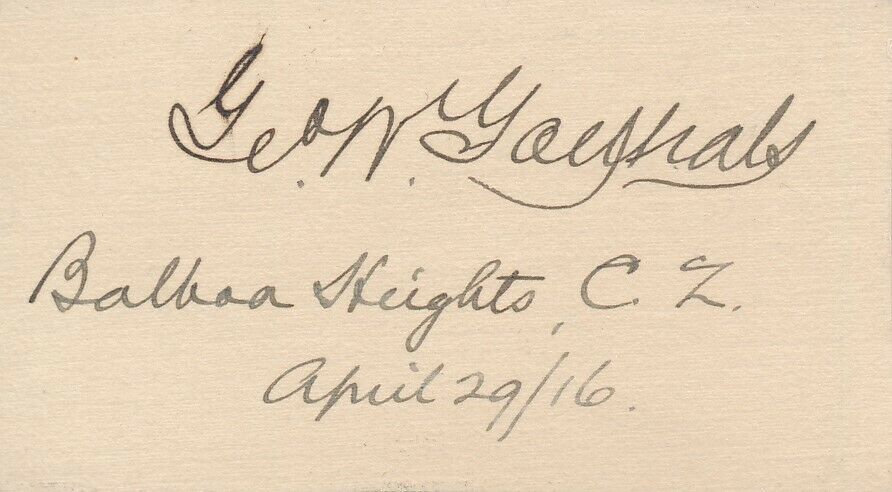 Geo. W. Goethals
Balboa Heights, C. Z.
April 29/16.